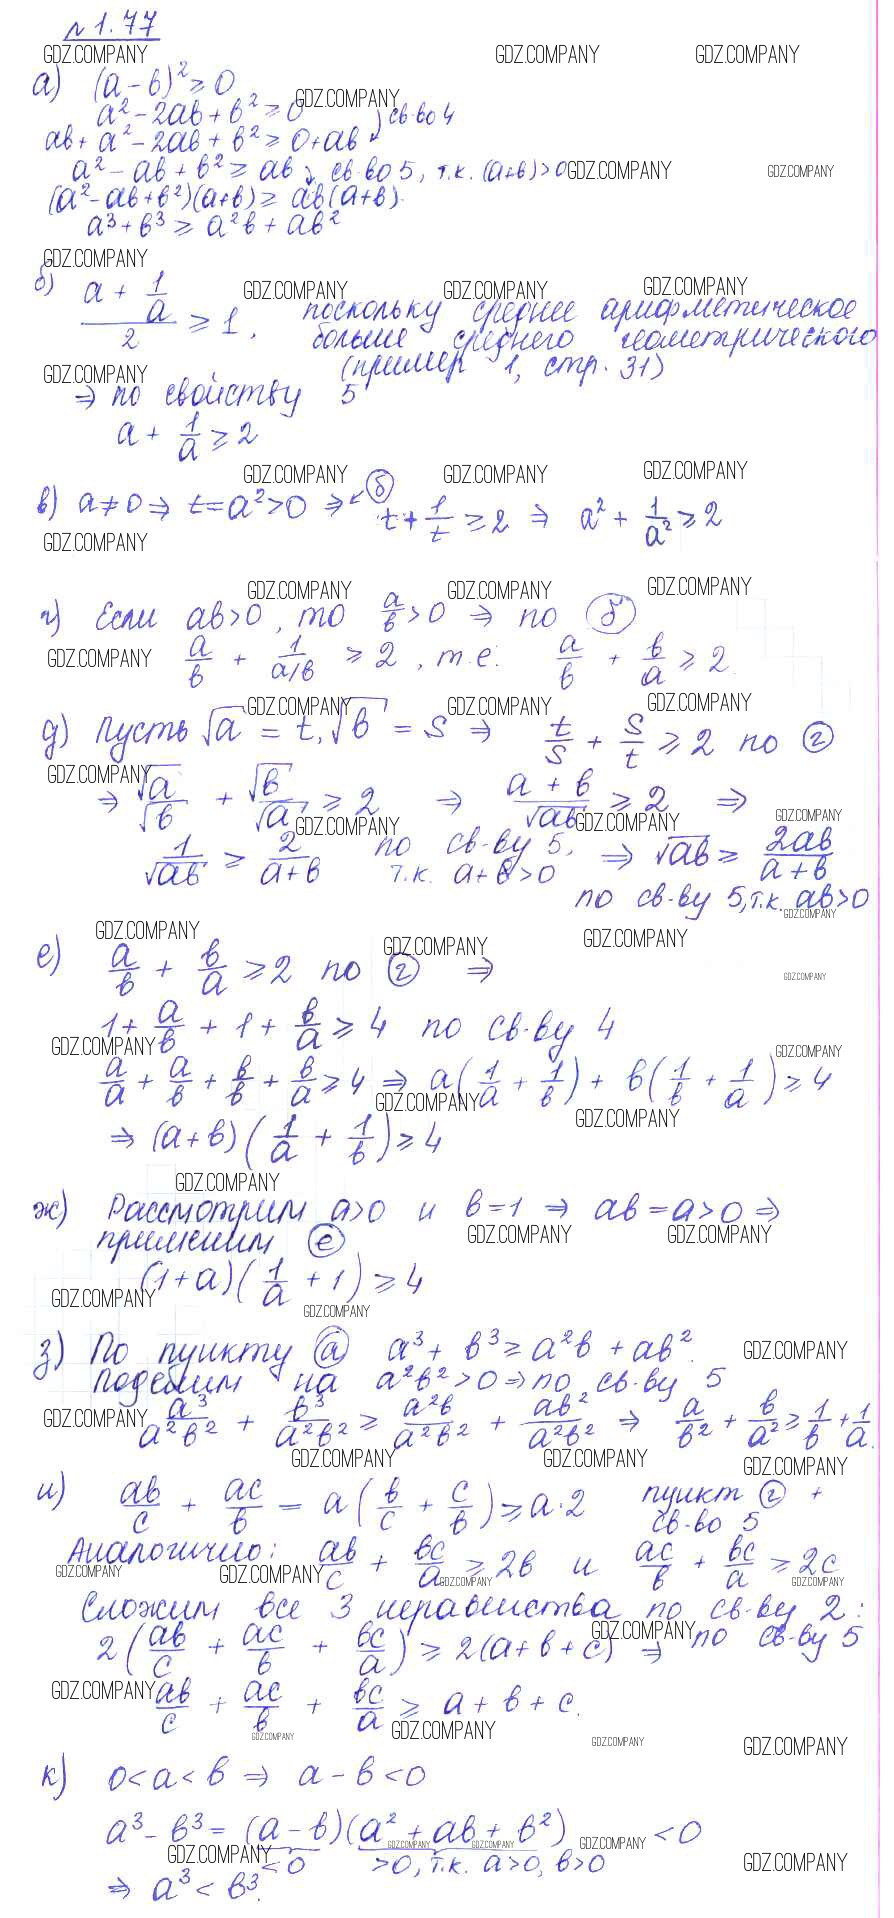 №1.77
GDZ.COMPANY GDZ.COMPANY GDZ.COMPANY
а) (a-b)² ≥ 0
GDZ.COMPANY
a² - 2ab + b² ≥ 0
св-во 4
ab + a² - 2ab + b² ≥ 0 + ab
a² - ab + b² ≥ ab св-во 5, т.к. (a+b) > 0 GDZ.COMPANY GDZ.COMPANY
(a² - ab + b²)(a+b) ≥ ab(a+b)
a³ + b³ ≥ a²b + ab²
GDZ.COMPANY
б) (a + 1/a)/2 ≥ 1, поскольку среднее арифметическое
GDZ.COMPANY GDZ.COMPANY GDZ.COMPANY
больше среднего геометрического
(пример 1, стр. 31)
GDZ.COMPANY
⇒ по свойству 5
a + 1/a ≥ 2
GDZ.COMPANY GDZ.COMPANY GDZ.COMPANY
в) a ≠ 0 ⇒ t = a² > 0 ⇒ б t + 1/t ≥ 2 ⇒ a² + 1/a² ≥ 2
GDZ.COMPANY
GDZ.COMPANY GDZ.COMPANY GDZ.COMPANY
г) Если ab > 0, то a/b > 0 ⇒ по б
GDZ.COMPANY a/b + 1/(a/b) ≥ 2, т.е. a/b + b/a ≥ 2
GDZ.COMPANY GDZ.COMPANY GDZ.COMPANY
д) Пусть √a = t, √b = s ⇒ t/s + s/t ≥ 2 по г
GDZ.COMPANY
⇒ √a/√b + √b/√a ≥ 2 ⇒ (a + b)/√ab ≥ 2 ⇒
GDZ.COMPANY GDZ.COMPANY GDZ.COMPANY
1/√ab ≥ 2/(a+b) по св-ву 5, т.к. a + b > 0 ⇒ √ab ≥ 2ab/(a+b)
по св-ву 5, т.к. ab > 0
GDZ.COMPANY
GDZ.COMPANY GDZ.COMPANY GDZ.COMPANY
е) a/b + b/a ≥ 2 по г ⇒
GDZ.COMPANY
1 + a/b + 1 + b/a ≥ 4 по св-ву 4
GDZ.COMPANY GDZ.COMPANY
a/a + a/b + b/b + b/a ≥ 4 ⇒ a(1/a + 1/b) + b(1/b + 1/a) ≥ 4
GDZ.COMPANY GDZ.COMPANY
⇒ (a+b)(1/a + 1/b) ≥ 4
GDZ.COMPANY
ж) Рассмотрим a > 0 и b = 1 ⇒ ab = a > 0 ⇒
GDZ.COMPANY GDZ.COMPANY
применим е
(1+a)(1/a + 1) ≥ 4
GDZ.COMPANY GDZ.COMPANY
з) По пункту а a³ + b³ ≥ a²b + ab².
GDZ.COMPANY
Поделим на a²b² > 0 ⇒ по св-ву 5
GDZ.COMPANY a³/a²b² + b³/a²b² ≥ a²b/a²b² + ab²/a²b² ⇒ a/b² + b/a² ≥ 1/b + 1/a.
GDZ.COMPANY GDZ.COMPANY GDZ.COMPANY
и) ab/c + ac/b = a(b/c + c/b) ≥ a·2 пункт г +
св-во 5
Аналогично: ab/c + bc/a ≥ 2b и ac/b + bc/a ≥ 2c
GDZ.COMPANY GDZ.COMPANY GDZ.COMPANY GDZ.COMPANY
Сложим все 3 неравенства по св-ву 2:
GDZ.COMPANY
2(ab/c + ac/b + bc/a) ≥ 2(a+b+c) ⇒ по св-ву 5
GDZ.COMPANY ab/c + ac/b + bc/a ≥ a + b + c.
GDZ.COMPANY GDZ.COMPANY GDZ.COMPANY GDZ.COMPANY
к) 0 < a < b ⇒ a - b < 0
a³ - b³ = (a - b)(a² + ab + b²) < 0
GDZ.COMPANY GDZ.COMPANY GDZ.COMPANY
GDZ.COMPANY < 0 > 0, т.к. a > 0, b > 0 GDZ.COMPANY
⇒ a³ < b³.